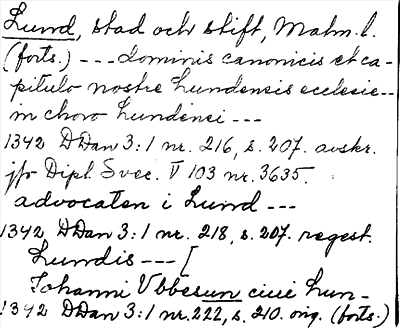 Lund, stad och stift, Malm. l.
(forts.) --- dominis canonicis et ca-
pitulo nostre Lundensis ecclesie--
in choro Lundensi ---
1342 DDan 3:1 nr. 216, s. 207. avskr.
jfr Dipl. Svec. V 103 nr. 3635.
advocaten i Lund ---
1342 DDan 3:1 nr. 218, s. 207. regest.
Lundis --- [
Johanni Vbbesun ciui Lun-
1342 DDan 3:1 nr. 222, s. 210. orig. (forts.)